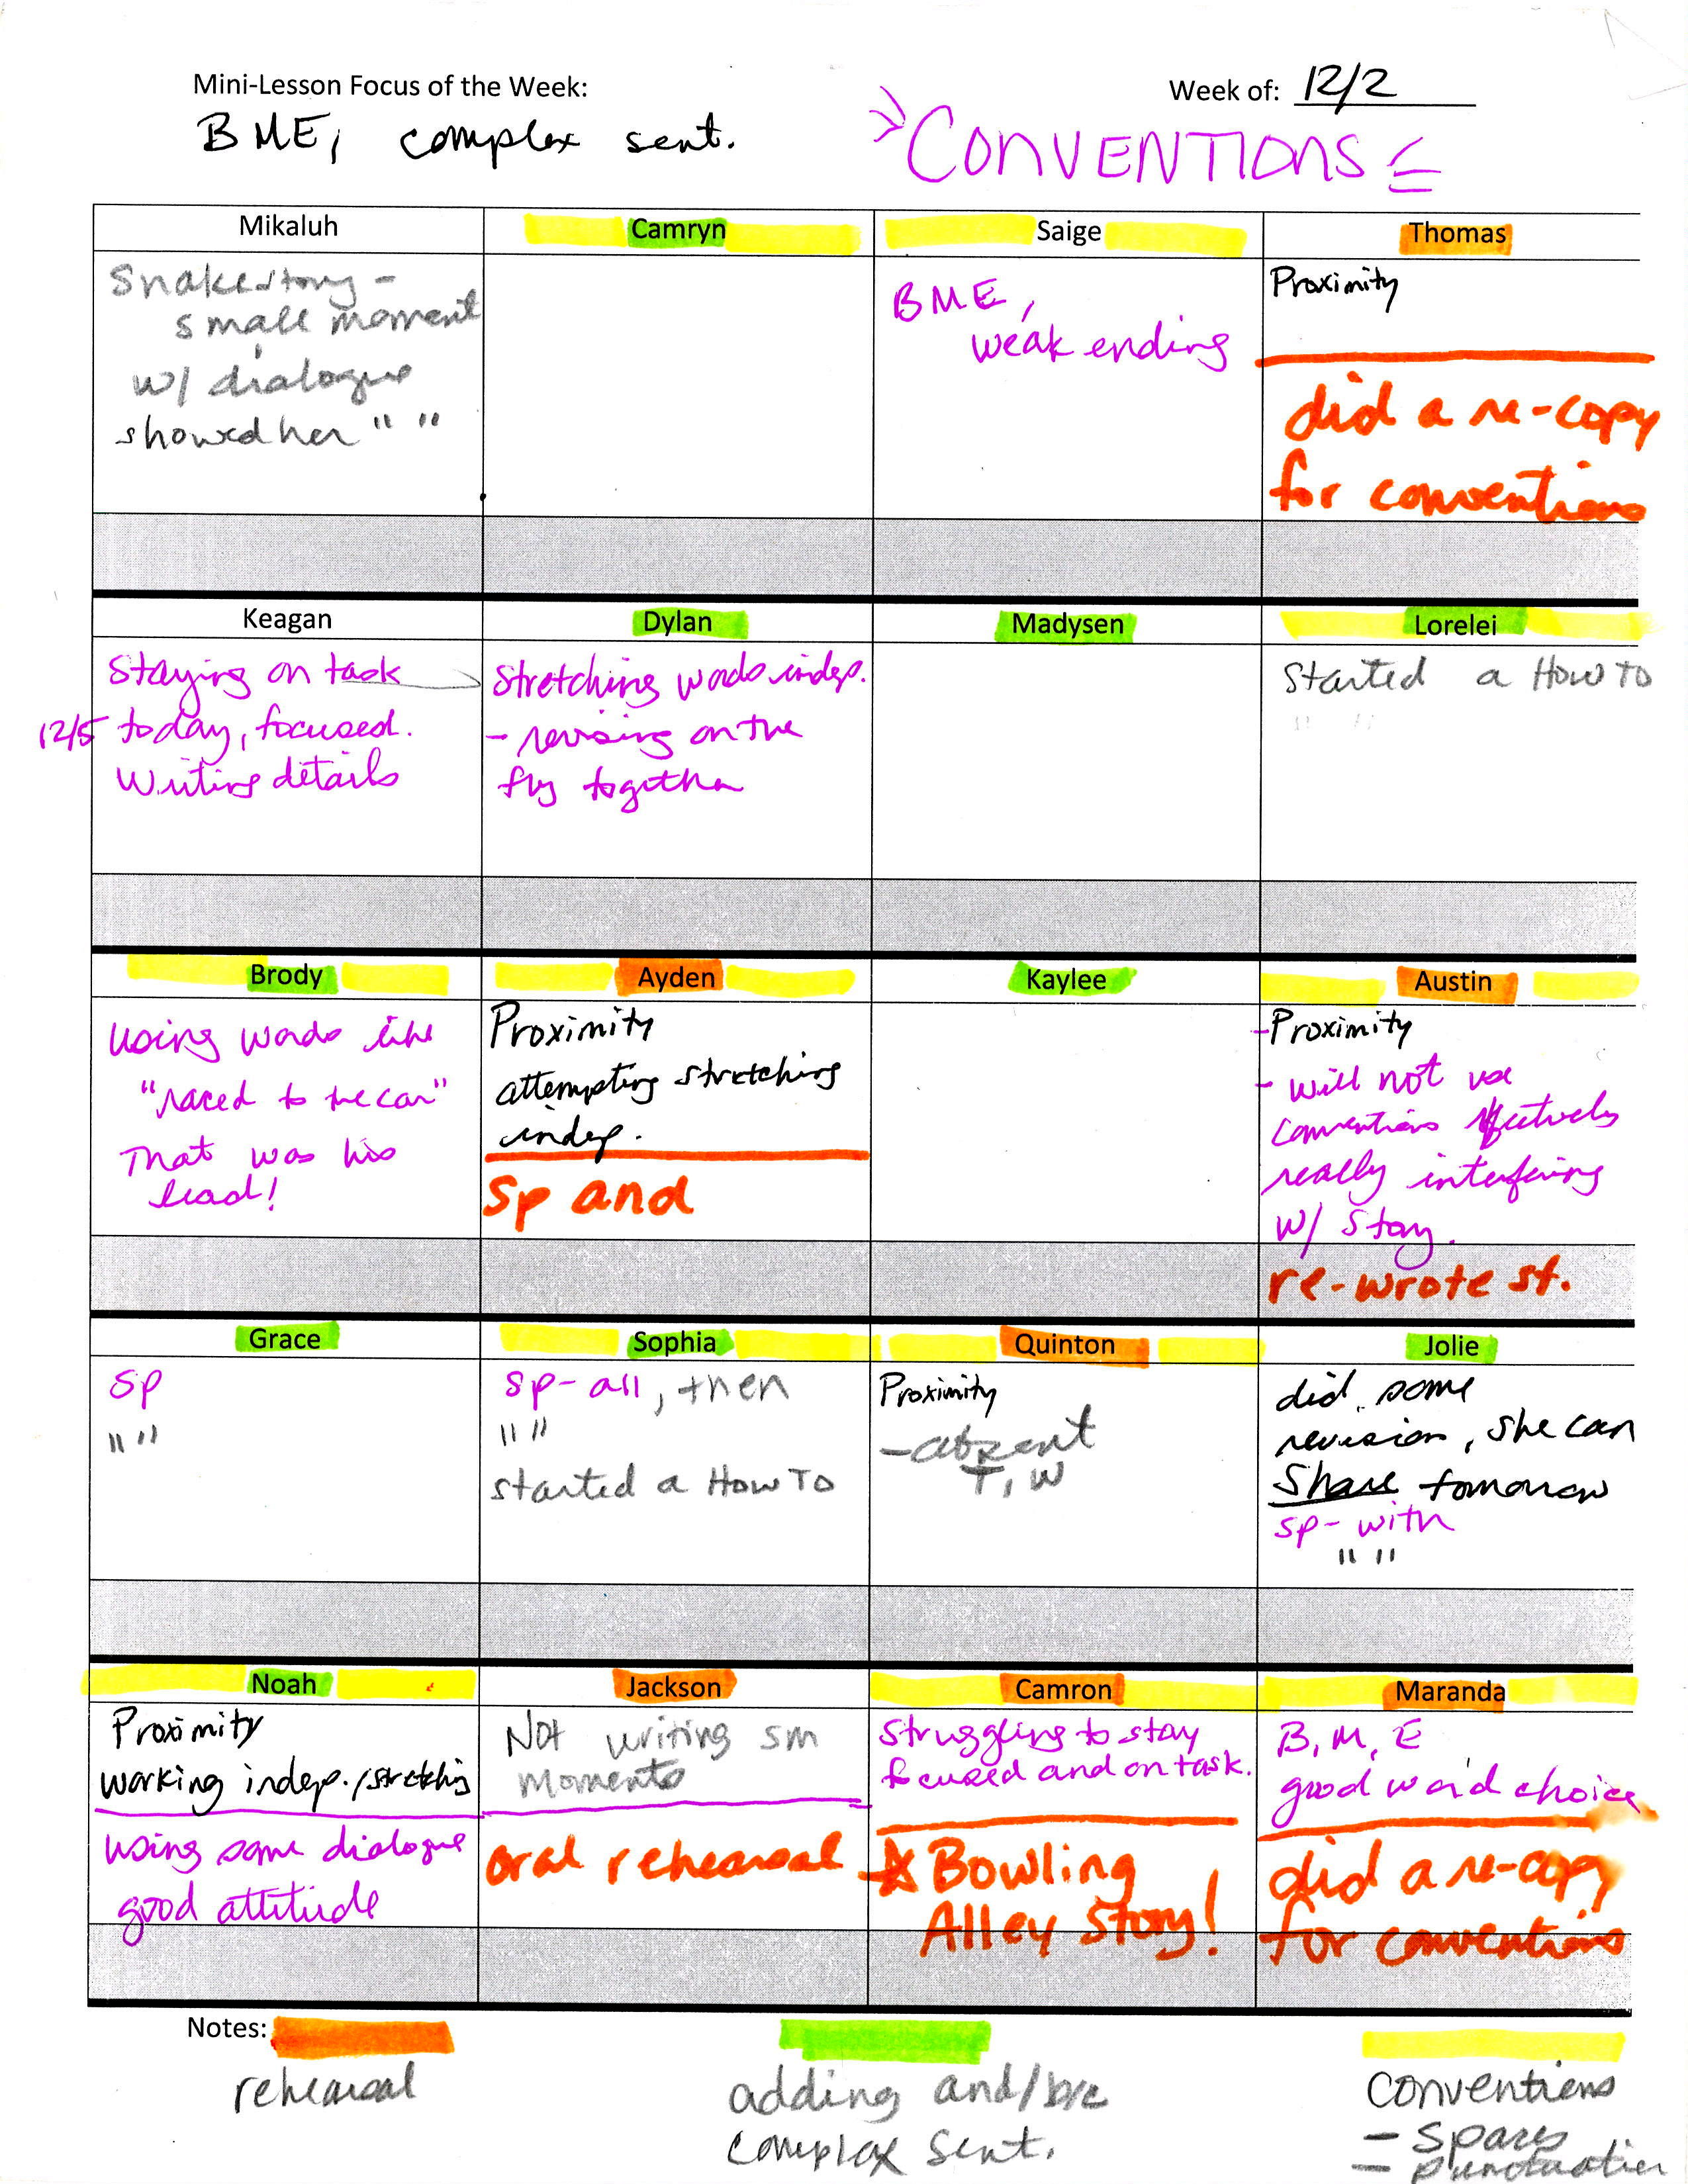 Mini-Lesson Focus of the Week:
Week of: 12/2
BME, complex sent.
CONVENTIONS
Mikaluh
Camryn
Saige
Thomas
Snake story -
small moment
w/ dialogue
showed her " "
BME,
weak ending
Proximity
did a re-copy
for conventions
Keagan
Dylan
Madysen
Lorelei
Staying on task
12/5 today, focused.
Writing details
Stretching words indep.
- revising on the
fly together
Started a How To
" "
Brody
Ayden
Kaylee
Austin
using words like
"raced to the car"
That was his
lead!
Proximity
attempting stretching
indep.
Sp and
- Proximity
- will not use
conventions effectively
really interfering
w/ story.
re-wrote st.
Grace
Sophia
Quinton
Jolie
sp
" "
sp - all, then
" "
started a How To
Proximity
- absent
T, W
did some
revision, she can
Share tomorrow
sp - with
" "
Noah
Jackson
Camron
Maranda
Proximity
working indep./stretching
using some dialogue
good attitude
Not writing sm
moments
oral rehearsal
Struggling to stay
focused and on task.
Bowling
Alley Story!
B, M, E
good word choice
did a re-copy
for conventions
Notes:
rehearsal
adding and/b/c
complex sent.
conventions
- spaces
- punctuation